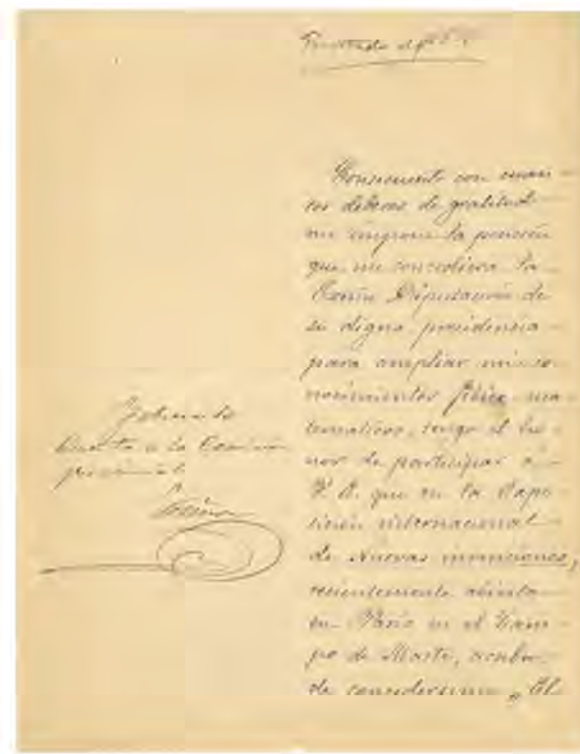 Consecuente con cuan-
tos deberes de gratitud
me impone la pensión
que me concediera la
Excma Diputación de
su digna presidencia
para ampliar mis co-
nocimientos físico-ma-
temáticos, tengo el ho-
nor de participar a
V. E. que en la Expo-
sición internacional
de Nuevas invenciones,
recientemente abierta
en París en el Cam-
po de Marte, acaban
de concederme „ El
Dar
cuenta a la Comisión
provincial